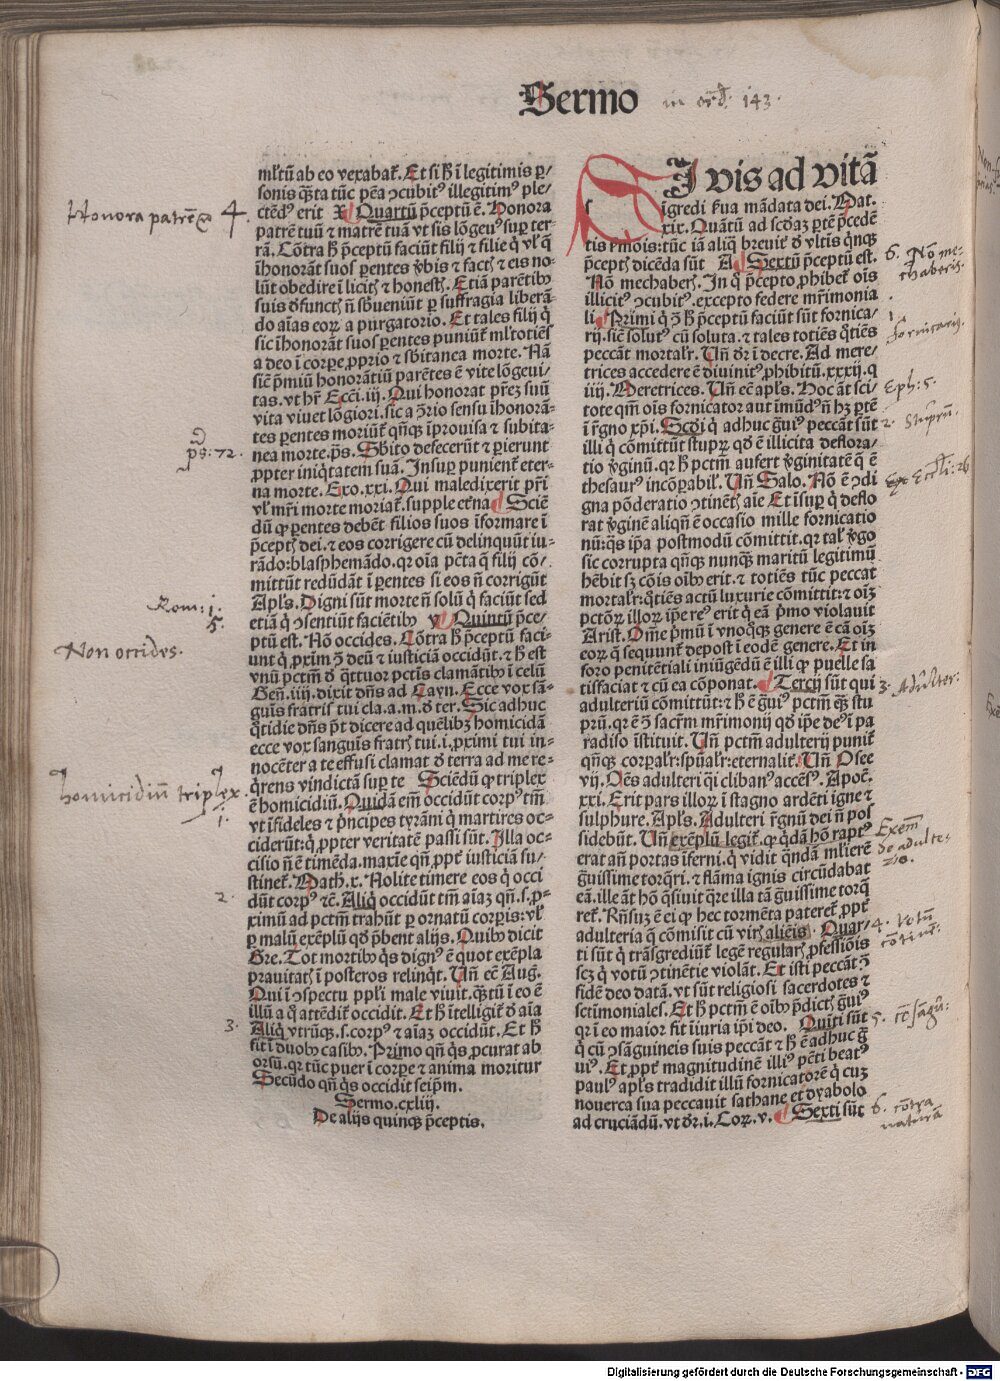 Sermo in ord. 143.
ml̄tū ab eo vexabat̃. Et si h̄ ī legitimis ꝑ/
sonis q̄sta tūc pēa ↄcubitꝰ illegitimꝰ ple/
ctēdꝰ erit X Quartū p̄ceptū ē. Honora
patrē tuū ⁊ matrē tuā vt sis lōgeuꝰ suꝑ ter/
rā. Cōtra h̄ p̄ceptū faciūt filij ⁊ filie q̇ vl̓ q̄
īhonorāt suos ꝑentes v̓bis ⁊ factꝭ ⁊ eis no/
lūt obedire ī licitꝭ ⁊ honestꝭ. Etiā parētibꝰ
suis d̓functꝭ n̄ sb̓ueniūt ꝑ suffragia liberā/
do aīas eoꝝ a purgatorio. Et tales filij q̇
sic īhonorāt suos ꝑentes puniūt̃ ml̓totiēs
a deo ī corꝑe ꝓprio ⁊ sb̓itanea morte. Nā
sic̄ p̄miū honorātiū parētes ē vite lōgeui/
tas. vt hr̄ Ecci. iij. Qui honorat pr̄ez suū
vita viuet lōgiori. sic a ↄ̄rio sensu īhonorā-
tes ꝑentes moriūt̃ qn̄qꝫ īprouisa ⁊ subita-
nea morte. p̄s. Sb̓ito defecerūt ⁊ ꝑierunt
ꝓpter iniq̇tatem suā. Insuꝑ punient̃ eter-
na morte. Exo. xxi. Qui maledixerit pr̄i
vl̓ mr̄i morte moriat̃. supple et̓na Sciē
dū ꝙ ꝑentes debēt filios suos īformare ī
p̄ceptꝭ dei. ⁊ eos corrigere cū delinquūt iu-
rādo: blasphemādo. qꝛ oīa pc̄ta q̄ filij cō/
mittūt redūdāt ī ꝑentes si eos n̄ corrigūt
Apl̓s. Digni sūt morte n̄ solū q̇ faciūt sed
etiā q̇ ↄsentiūt faciētibꝰ y Quintū p̄ce/
ptū est. Nō occides. Cōtra h̄ p̄ceptū faci/
unt q̇ ꝓxim̄ ↄ̄ deū ⁊ iusticiā occidūt. ⁊ h̄ est
vnū pctm̄ d̓ q̄ttuor pctis clamātibꝰ ī celū
Gen̄. iiij. dixit dn̄s ad Cayn. Ecce vox sā-
guīs fratris tui cla. a. m. d̓ ter. Sic adhuc
q̇tidie dn̄s p̄t dicere ad quēlibꝫ homicidā
ecce vox sanguīs fratrꝭ tui. i. ꝓximi tui in-
nocēter a te effusi clamat d̓ terra ad me re-
q̇rens vindictā suꝑ te Sciēdū ꝙ triplex
ē homicidiū. Quidā em̄ occidūt corpꝰ tm̄
vt īfideles ⁊ p̄ncipes tyrāni q̇ martires oc-
ciderūt: q̇ ꝓpter veritatē passi sūt. Illa oc-
cisio n̄ ē timēda. maxīe qn̄ ꝓpt̓ iusticiā su/
stinet̃. Math. x. Nolite timere eos q̇ occi
dūt corpꝰ ⁊c̄. Aliq̇ occidūt tm̄ aīaꝫ qn̄. s. ꝓ-
ximū ad pctm̄ trahūt ꝑ ornatū corꝑis: vl̓
ꝑ malū exēplū qd̓ p̄bent alijs. Quibꝰ dicit
Gre. Tot mortibꝰ q̇s dignꝰ ē quot exēpla
prauitatꝭ ī posteros relinq̇t. Un̄ ec̄ Aug.
Qui ī ↄspectu ppl̓i male viuit. q̄ntū ī eo ē
illū a q̇ attēdit̃ occidit. Et h̄ ītelligit̃ d̓ aīa
Aliq̇ vtrūqꝫ. s. corpꝰ ⁊ aīaꝫ occidūt. Et h̄
fit ī duobꝰ casibꝰ. Primo qn̄ q̇s ꝓcurat ab
orsū. qꝛ tūc puer ī corꝑe ⁊ anima moritur
Secūdo qn̄ q̇s occidit seip̄m.
Sermo. cxliij.
De alijs quinqꝫ p̄ceptis.
SI vis ad vitā
īgredi s̓ua mādata dei. Mat.
xix. Quātū ad scd̓aꝫ ꝑtē p̄cedē
tis s̓mōis: tūc iā aliq̇ breuit̓ d̓ vltīs q̇nqꝫ
p̄ceptꝭ dicēda sūt A Sextū p̄ceptū est.
Nō mechaberꝭ. In q̇ p̄cepto ꝓhibet̃ oīs
illicitꝰ ↄcubitꝰ. excepto federe mr̄imonia
li Primi q̇ ↄ̄ h̄ p̄ceptū faciūt sūt fornica/
rij. sic̄ solutꝰ cū soluta. ⁊ tales totiēs q̇tiēs
peccāt mortal̓r. Un̄ dr̄ ī decre. Ad mere/
trices accedere ē diuinitꝰ ꝓhibitū. xxxij. q
iiij. Meretrices. Un̄ ec̄ apl̓s. Hoc āt sci/
tote qm̄ oīs fornicator aut īmūdꝰ n̄ hꝫ ꝑtē
ī r̄gno xp̄i. Scd̓i q̇ adhuc g̓uiꝰ peccāt sūt
illi q̇ cōmittūt stuprꝫ qd̓ ē illicita deflora/
tio v̓ginū. qꝛ h̄ pctm̄ aufert v̓ginitatē q̄ ē
thesaurꝰ incōꝑabil̓. Un̄ Salo. Nō ē ↄdi
gna pōderatio ↄtinētꝭ aīe Et īsuꝑ q̇ deflo
rat v̓ginē aliqn̄ ē occasio mille fornicatio
nū: q̄s ip̄a postmodū cōmittit. qꝛ tal̓ v̓go
sic corrupta qn̄qꝫ nunqꝫ maritū legitimū
hēbit sꝫ cōis oībꝰ erit. ⁊ totiēs tūc peccat
mortal̓r: q̇tiēs actū luxurie cōmittit: ⁊ oīꝫ
pctōꝝ illoꝝ ip̄e reꝰ erit q̇ eā p̄mo violauit
Arist. Om̄e p̄mū ī vnoqꝫ genere ē cā oīꝫ
eoꝝ q̄ sequunt̃ depost ī eodē genere. Et in
foro penitētiali iniūgēdū ē illi ꝙ puelle sa
tisfaciat ⁊ cū ea cōponat. Tercij sūt qui
adulteriū cōmittūt: ⁊ h̄ ē g̓uiꝰ pctm̄ qꝫ stu
prū. qꝛ ē ↄ̄ sacr̄m mr̄imonij qd̓ ip̄e deꝰ ī pa
radiso īstituit. Un̄ pctm̄ adulterij punit̃
qn̄qꝫ corꝑal̓r: spūal̓r: eternalit̓. Un̄ Osee
vij. Oēs adulteri q̇i clibanꝰ accēsꝰ. Apoc̄.
xxi. Erit pars illoꝝ ī stagno ardēti igne ⁊
sulphure. Apl̓s. Adulteri r̄gnū dei n̄ pos
sidebūt. Un̄ exēplū legit̃. ꝙ q̇dā hō raptꝰ
erat an̄ portas īferni. q̇ vidit qn̄dā ml̓ierē
g̓uissime torq̇ri. ⁊ flāma ignis circūdabat
eā. ille āt hō q̄siuit q̄re illa tā g̓uissime torq̄
ret̃. Rn̄suꝫ ē ei ꝙ hec tormēta pateret̃ ꝓpt̓
adulteria q̄ cōmisit cū virꝭ aliēis. Quar/
ti sūt q̇ trāsgrediūt̃ legē regularꝭ ꝓfessiōis
scꝫ q̇ votū ↄtinētie violāt. Et isti peccāt ↄ̄
fidē deo datā. vt sūt religiosi sacerdotes ⁊
sctimoniales. Et h̄ pctm̄ ē oībꝰ p̄dictꝭ g̓uiꝰ
qꝛ ī eo maior fit iiuria ip̄i deo. Quīti sūt
q̇ cū ↄsāguineis suis peccāt ⁊ h̄ ē adhuc g̓
uiꝰ. Et ꝓpt̓ magnitudinē illiꝰ pc̄ti beatꝰ
paulꝰ apl̓s tradidit illū fornicatorē q̇ cuꝫ
nouerca sua peccauit sathane et dyabolo
ad cruciādū. vt dr̄. i. Coꝝ. v. Sexti sūt
Honora patrē 4.
ps: 72.
Rom: 1.
5.
Non occides.
homicidiū triplex.
1.
2.
3.
6. Nō me-
chaberis.
1.
fornicarij.
Eph: 5.
2. Stuprū.
Eccli: 26
3. Adulter:
Exem̄
de adulte-
rio.
4. Votū
cōtinē:
5.
6. cōtra
naturā
Digitalisierung gefördert durch die Deutsche Forschungsgemeinschaft - DFG